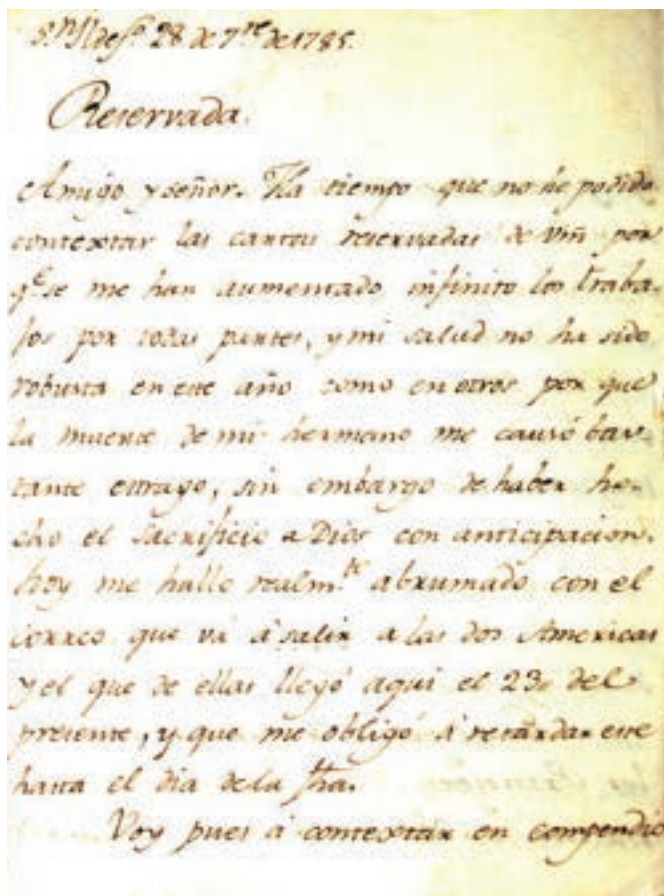 S.n Yldef.o 28 de 7.re de 1785.
Reservada.
Amigo y señor. Ha tiempo que no he podido
contextar las cartas reservadas de Vm por
q.e se me han aumentado infinito los traba-
jos por todas partes, y mi salud no ha sido
robusta en este año como en otros por que
la muerte de mi hermano me causó bas-
tante estrago, sin embargo de haber he-
cho el sacrificio a Dios con anticipacion.
hoy me hallo realm.te abrumado con el
correo que vá á salir a las dos Americas
y el que de ellas llegó aqui el 23. del
presente, y que me obligó á retardar este
hasta el dia de la fha.
Voy pues á contextar en compendio